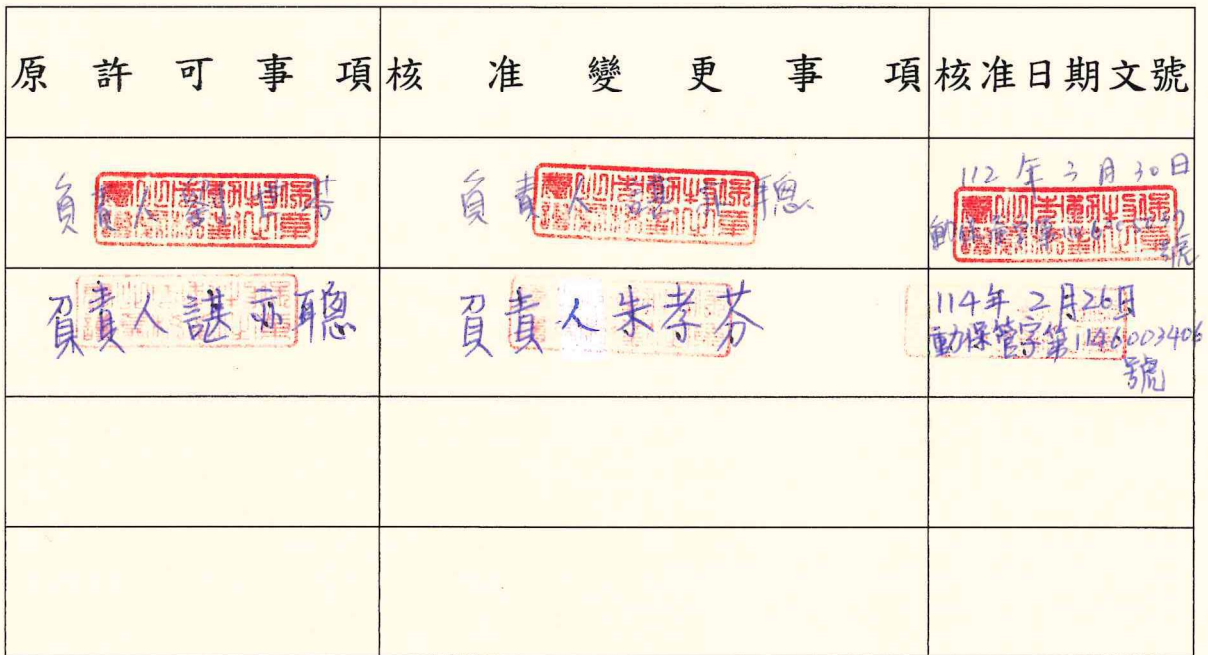 原許可事項 核准變更事項 核准日期文號
負責人 芬 負責人 聰 112年3月30日
號
負責人諶亦聰 負責人朱孝芬 114年2月26日
動保管字第1146003406
號